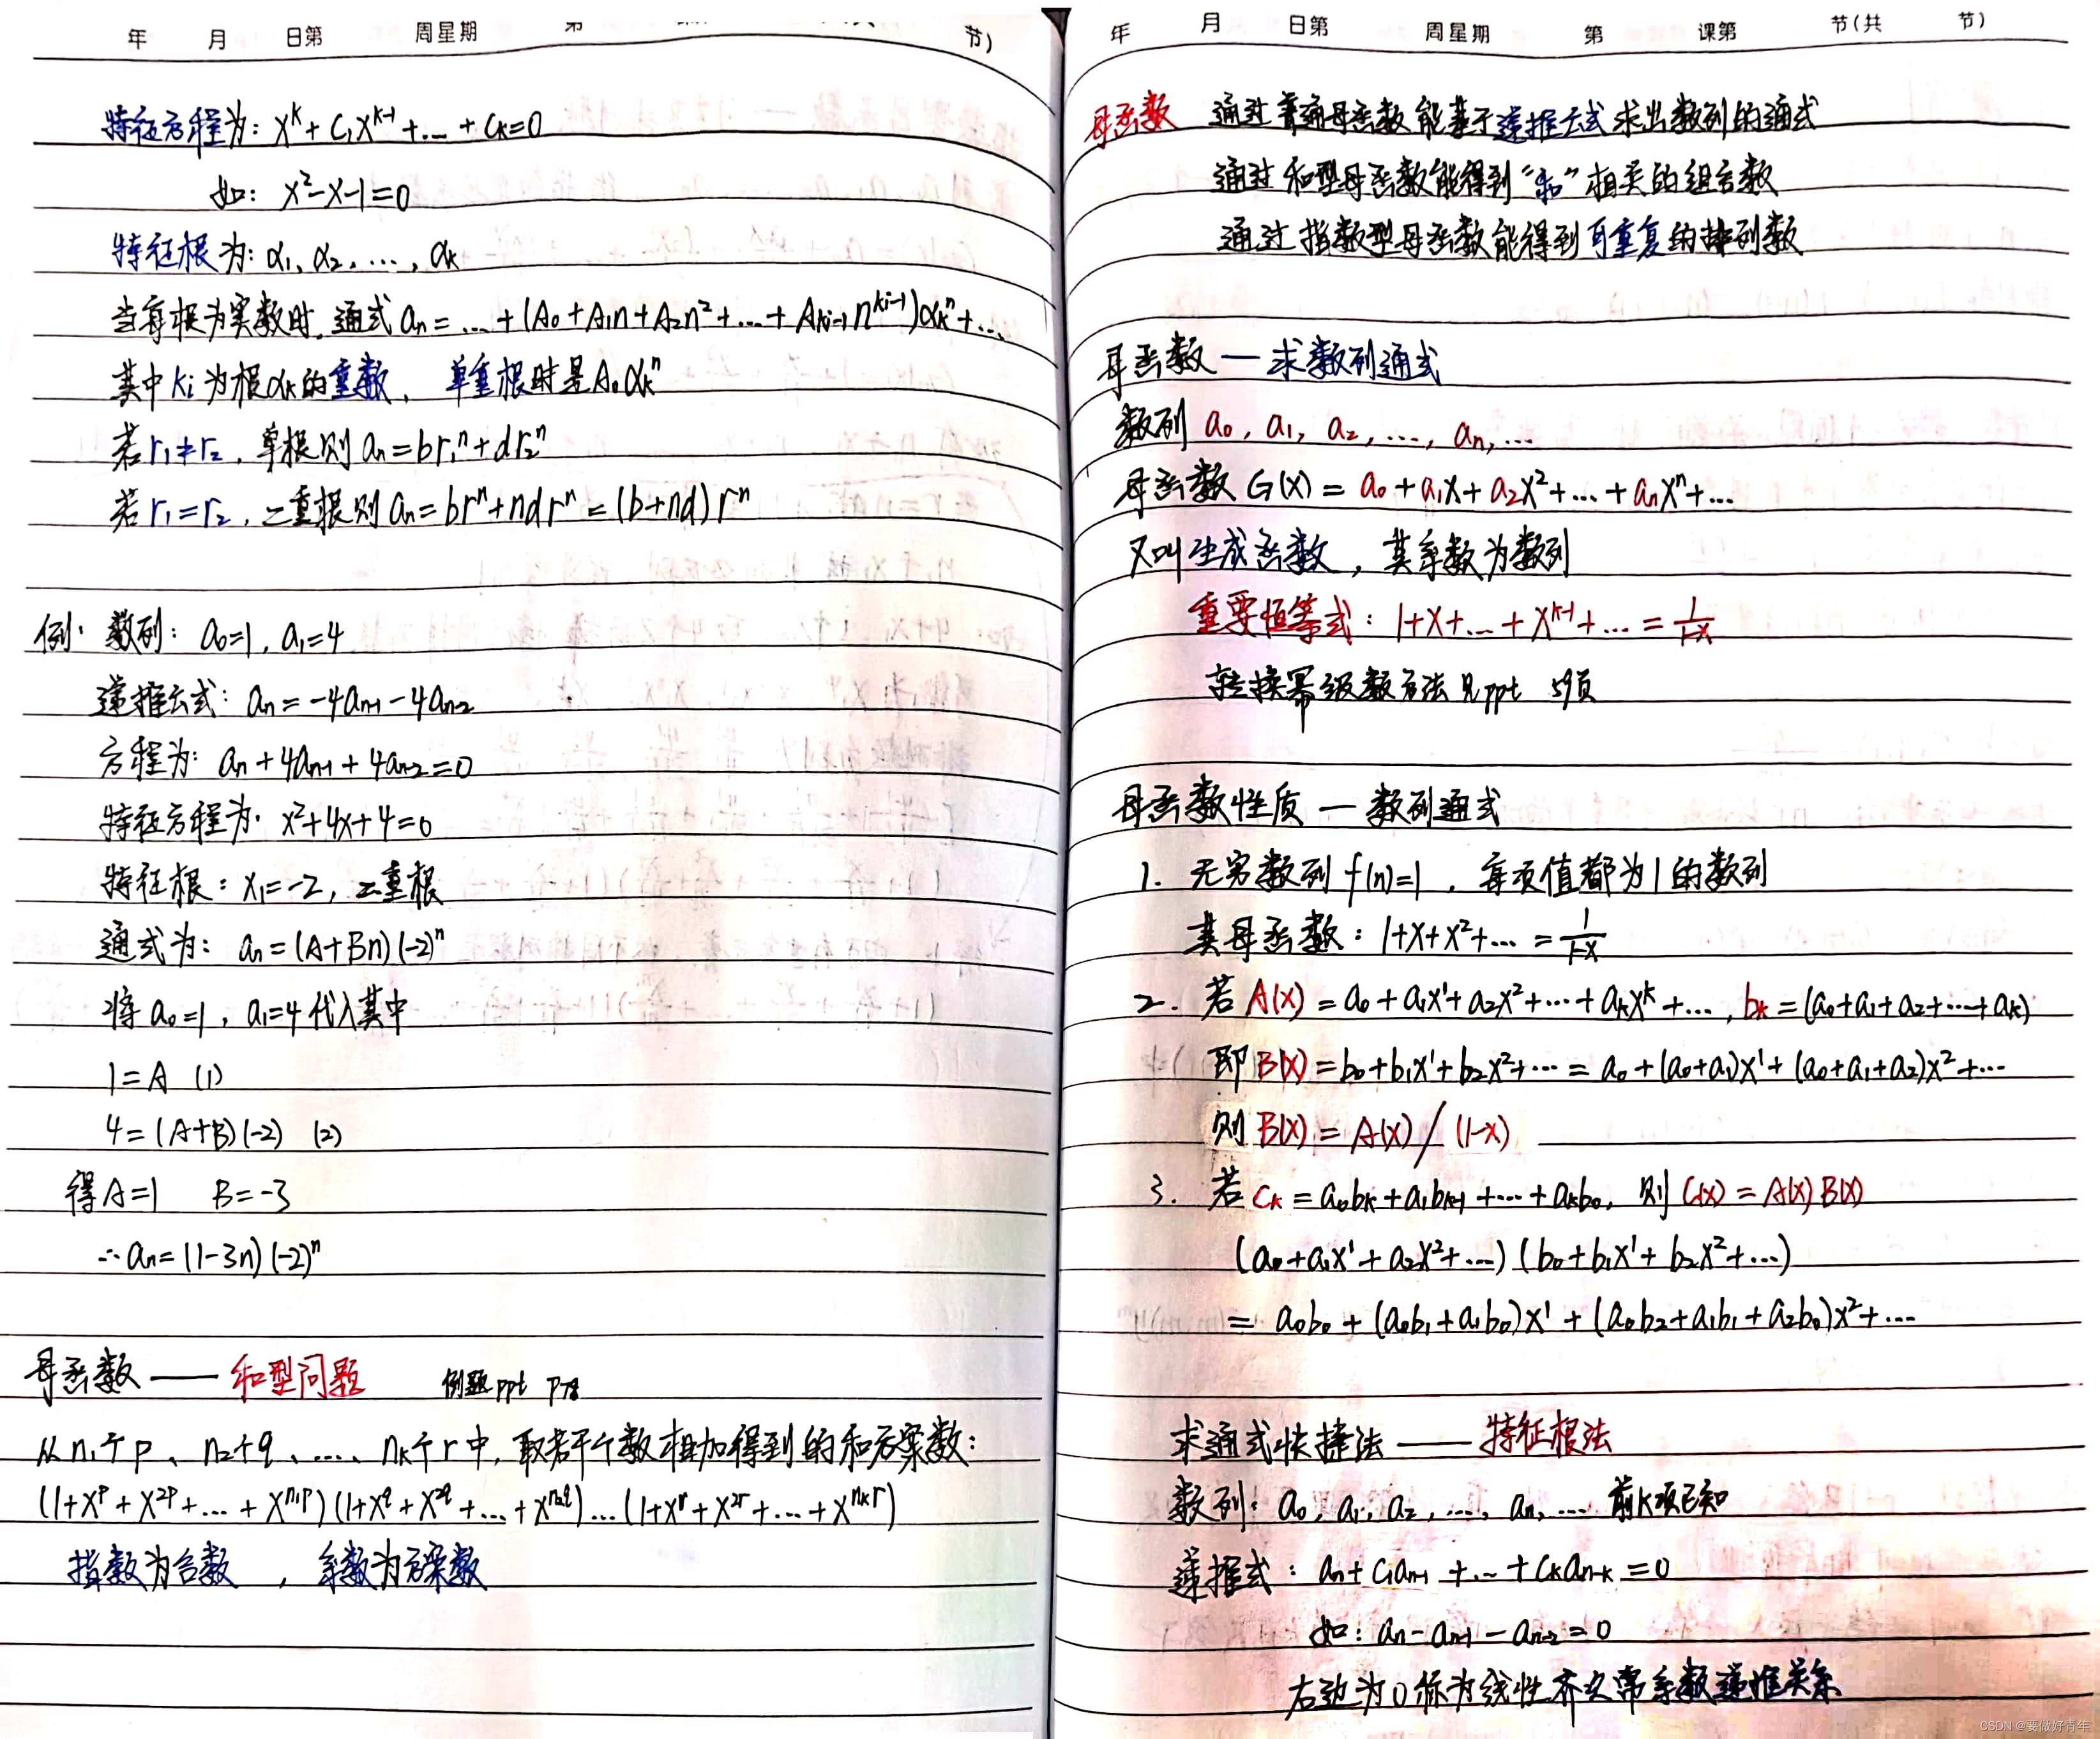 年 月 日第 周星期 第 节)
特征方程为: x^k + C₁x^(k-1) + … + Cₖ=0
如: x²-x-1=0
特征根为: α₁、α₂, …, αₖ
当每根为实数时, 通式 aₙ = … + (A₀+A₁n+A₂n²+…+A_(ki-1) n^(ki-1))αₖⁿ+…
其中 ki 为根αₖ的重数, 单重根时是A₀αₖⁿ
若r₁≠r₂, 单根则 aₙ=br₁ⁿ+dr₂ⁿ
若r₁=r₂, 二重根则 aₙ=brⁿ+ndrⁿ = (b+nd)rⁿ
例: 数列: a₀=1, a₁=4
递推公式: aₙ = -4aₙ₋₁ - 4aₙ₋₂
方程为: aₙ+4aₙ₋₁+4aₙ₋₂=0
特征方程为: x²+4x+4=0
特征根: x₁=-2, 二重根
通式为: aₙ=(A+Bn)(-2)ⁿ
将 a₀=1, a₁=4 代入其中
1=A (1)
4=(A+B)(-2) (2)
得A=1 B=-3
∴ aₙ=(1-3n)(-2)ⁿ
母函数 —— 和型问题 例题ppt P78
从n₁个p、n₂个q、…、nₖ个r中, 取若干个数相加得到的和方案数:
(1+x^p+x^2p+…+x^(n₁p))(1+x^q+x^2q+…+x^(n₂q))…(1+x^r+x^2r+…+x^(nₖr))
指数为合数, 系数为方案数
年 月 日第 周星期 第 课第 节(共 节)
母函数 通过普通母函数能基于递推公式求出数列的通式
通过和型母函数能得到“和”相关的组合数
通过指数型母函数能得到可重复的排列数
母函数 — 求数列通式
数列 a₀, a₁, a₂, …, aₙ, …
母函数 G(x) = a₀+a₁x+a₂x²+…+aₙxⁿ+…
又叫生成函数, 其系数为数列
重要恒等式: 1+x+…+x^(k-1)+… = 1/(1-x)
转换幂级数方法见ppt 59页
母函数性质 — 数列通式
1. 无穷数列 f(n)=1, 每项值都为1的数列
其母函数: 1+x+x²+… = 1/(1-x)
2. 若 A(x) = a₀+a₁x¹+a₂x²+…+aₖx^k+…, bₖ=(a₀+a₁+a₂+…+aₖ)
即 B(x)=b₀+b₁x¹+b₂x²+… = a₀+(a₀+a₁)x¹+(a₀+a₁+a₂)x²+…
则 B(x) = A(x) / (1-x)
3. 若 Cₖ = a₀bₖ+a₁bₖ₋₁+…+aₖb₀, 则 C(x) = A(x)B(x)
(a₀+a₁x¹+a₂x²+…)(b₀+b₁x¹+b₂x²+…)
= a₀b₀+(a₀b₁+a₁b₀)x¹+(a₀b₂+a₁b₁+a₂b₀)x²+…
求通式快捷法 —— 特征根法
数列: a₀, a₁, a₂, …, aₙ, … 前k项已知
递推式: aₙ+C₁aₙ₋₁+…+Cₖaₙ₋ₖ=0
如: aₙ-aₙ₋₁-aₙ₋₂=0
右边为0称为线性齐次常系数递推关系
CSDN @要做好青年